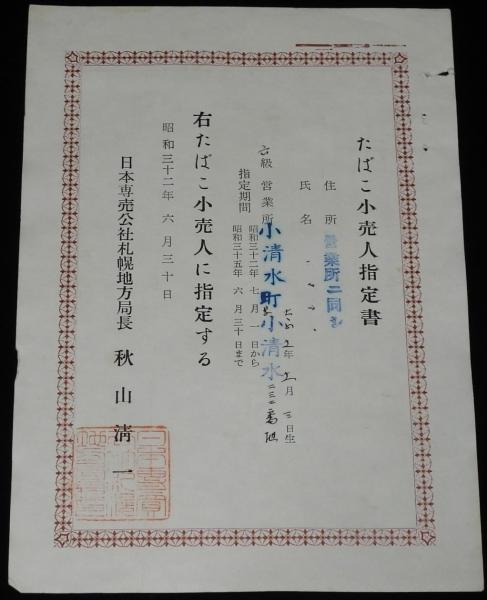 たばこ小売人指定書
住所 営業所ニ同ジ
氏名
年 月 三日生
六級 営業所 小清水町小清水 番地
指定期間 昭和三十二年 七月 一日から
昭和三十五年 六月 三十日まで
右たばこ小売人に指定する
昭和三十二年 六月三十日
日本専売公社札幌地方局長 秋山清一